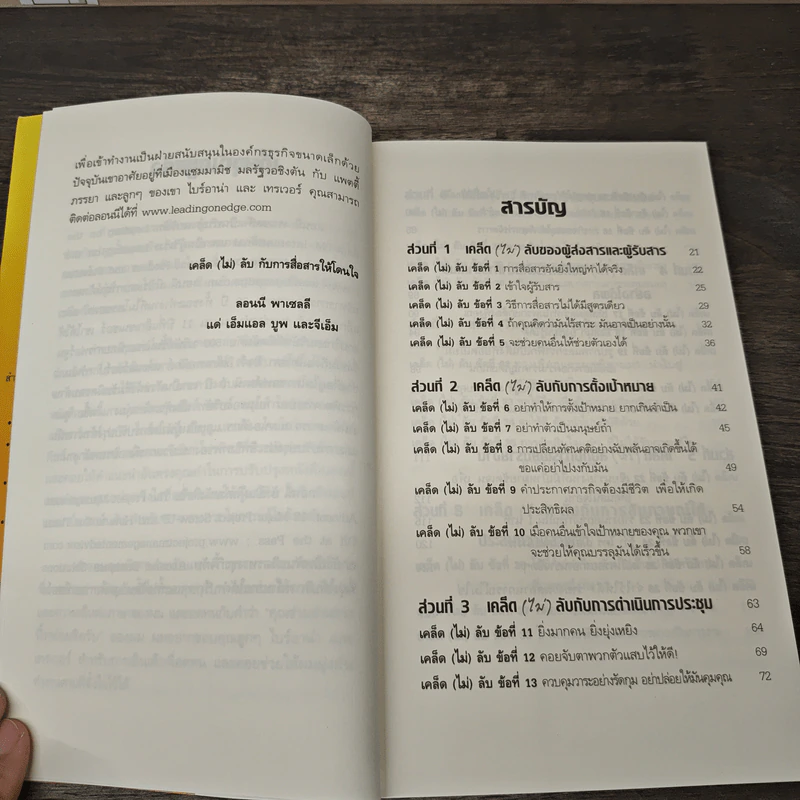 เพื่อเข้าทำงานเป็นฝ่ายสนับสนุนในองค์กรธุรกิจขนาดเล็กด้วย
ปัจจุบันเขาอาศัยอยู่ที่เมืองแซมมามิช มลรัฐวอชิงตัน กับ แพตตี้
ภรรยา และลูกๆ ของเขา ไบร์อาน่า และ เทรเวอร์ คุณสามารถ
ติดต่อลอนนีได้ที่ www.leadingonedge.com
เคล็ด (ไม่) ลับ กับการสื่อสารให้โดนใจ
ลอนนี พาเซลลี
แด่ เอ็มแอล บูพ และจีเอ็ม
สารบัญ
ส่วนที่ 1 เคล็ด (ไม่) ลับของผู้ส่งสารและผู้รับสาร 21
เคล็ด (ไม่) ลับ ข้อที่ 1 การสื่อสารอันยิ่งใหญ่ทำได้จริง 22
เคล็ด (ไม่) ลับ ข้อที่ 2 เข้าใจผู้รับสาร 25
เคล็ด (ไม่) ลับ ข้อที่ 3 วิธีการสื่อสารไม่ได้มีสูตรเดียว 29
เคล็ด (ไม่) ลับ ข้อที่ 4 ถ้าคุณคิดว่ามันไร้สาระ มันอาจเป็นอย่างนั้น 32
เคล็ด (ไม่) ลับ ข้อที่ 5 จะช่วยคนอื่นให้ช่วยตัวเองได้ 36
ส่วนที่ 2 เคล็ด (ไม่) ลับกับการตั้งเป้าหมาย 41
เคล็ด (ไม่) ลับ ข้อที่ 6 อย่าทำให้การตั้งเป้าหมาย ยากเกินจำเป็น 42
เคล็ด (ไม่) ลับ ข้อที่ 7 อย่าทำตัวเป็นมนุษย์ถ้ำ 45
เคล็ด (ไม่) ลับ ข้อที่ 8 การเปลี่ยนทัศนคติอย่างฉับพลันอาจเกิดขึ้นได้
ขอแค่อย่าไปงงกับมัน 49
เคล็ด (ไม่) ลับ ข้อที่ 9 คำประกาศภารกิจต้องมีชีวิต เพื่อให้เกิด
ประสิทธิผล 54
เคล็ด (ไม่) ลับ ข้อที่ 10 เมื่อคนอื่นเข้าใจเป้าหมายของคุณ พวกเขา
จะช่วยให้คุณบรรลุมันได้เร็วขึ้น 58
ส่วนที่ 3 เคล็ด (ไม่) ลับกับการดำเนินการประชุม 63
เคล็ด (ไม่) ลับ ข้อที่ 11 ยิ่งมากคน ยิ่งยุ่งเหยิง 64
เคล็ด (ไม่) ลับ ข้อที่ 12 คอยจับตาพวกตัวแสบไว้ให้ดี! 69
เคล็ด (ไม่) ลับ ข้อที่ 13 ควบคุมวาระอย่างรัดกุม อย่าปล่อยให้มันคุมคุณ 72